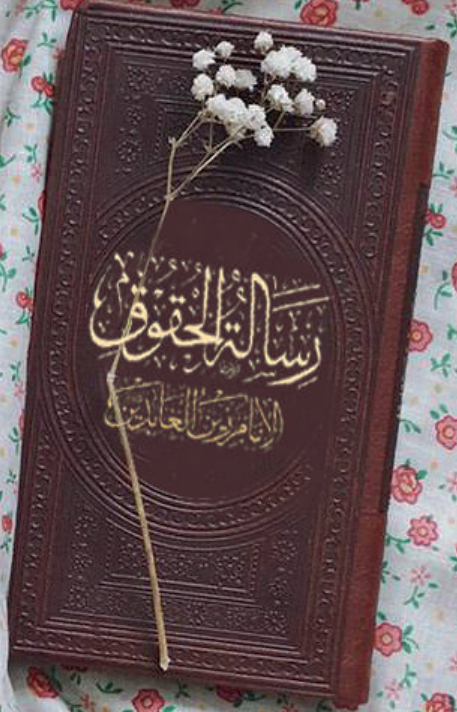 رِسَالَةُ الحُقُوقِ
الإمام زين العابدين